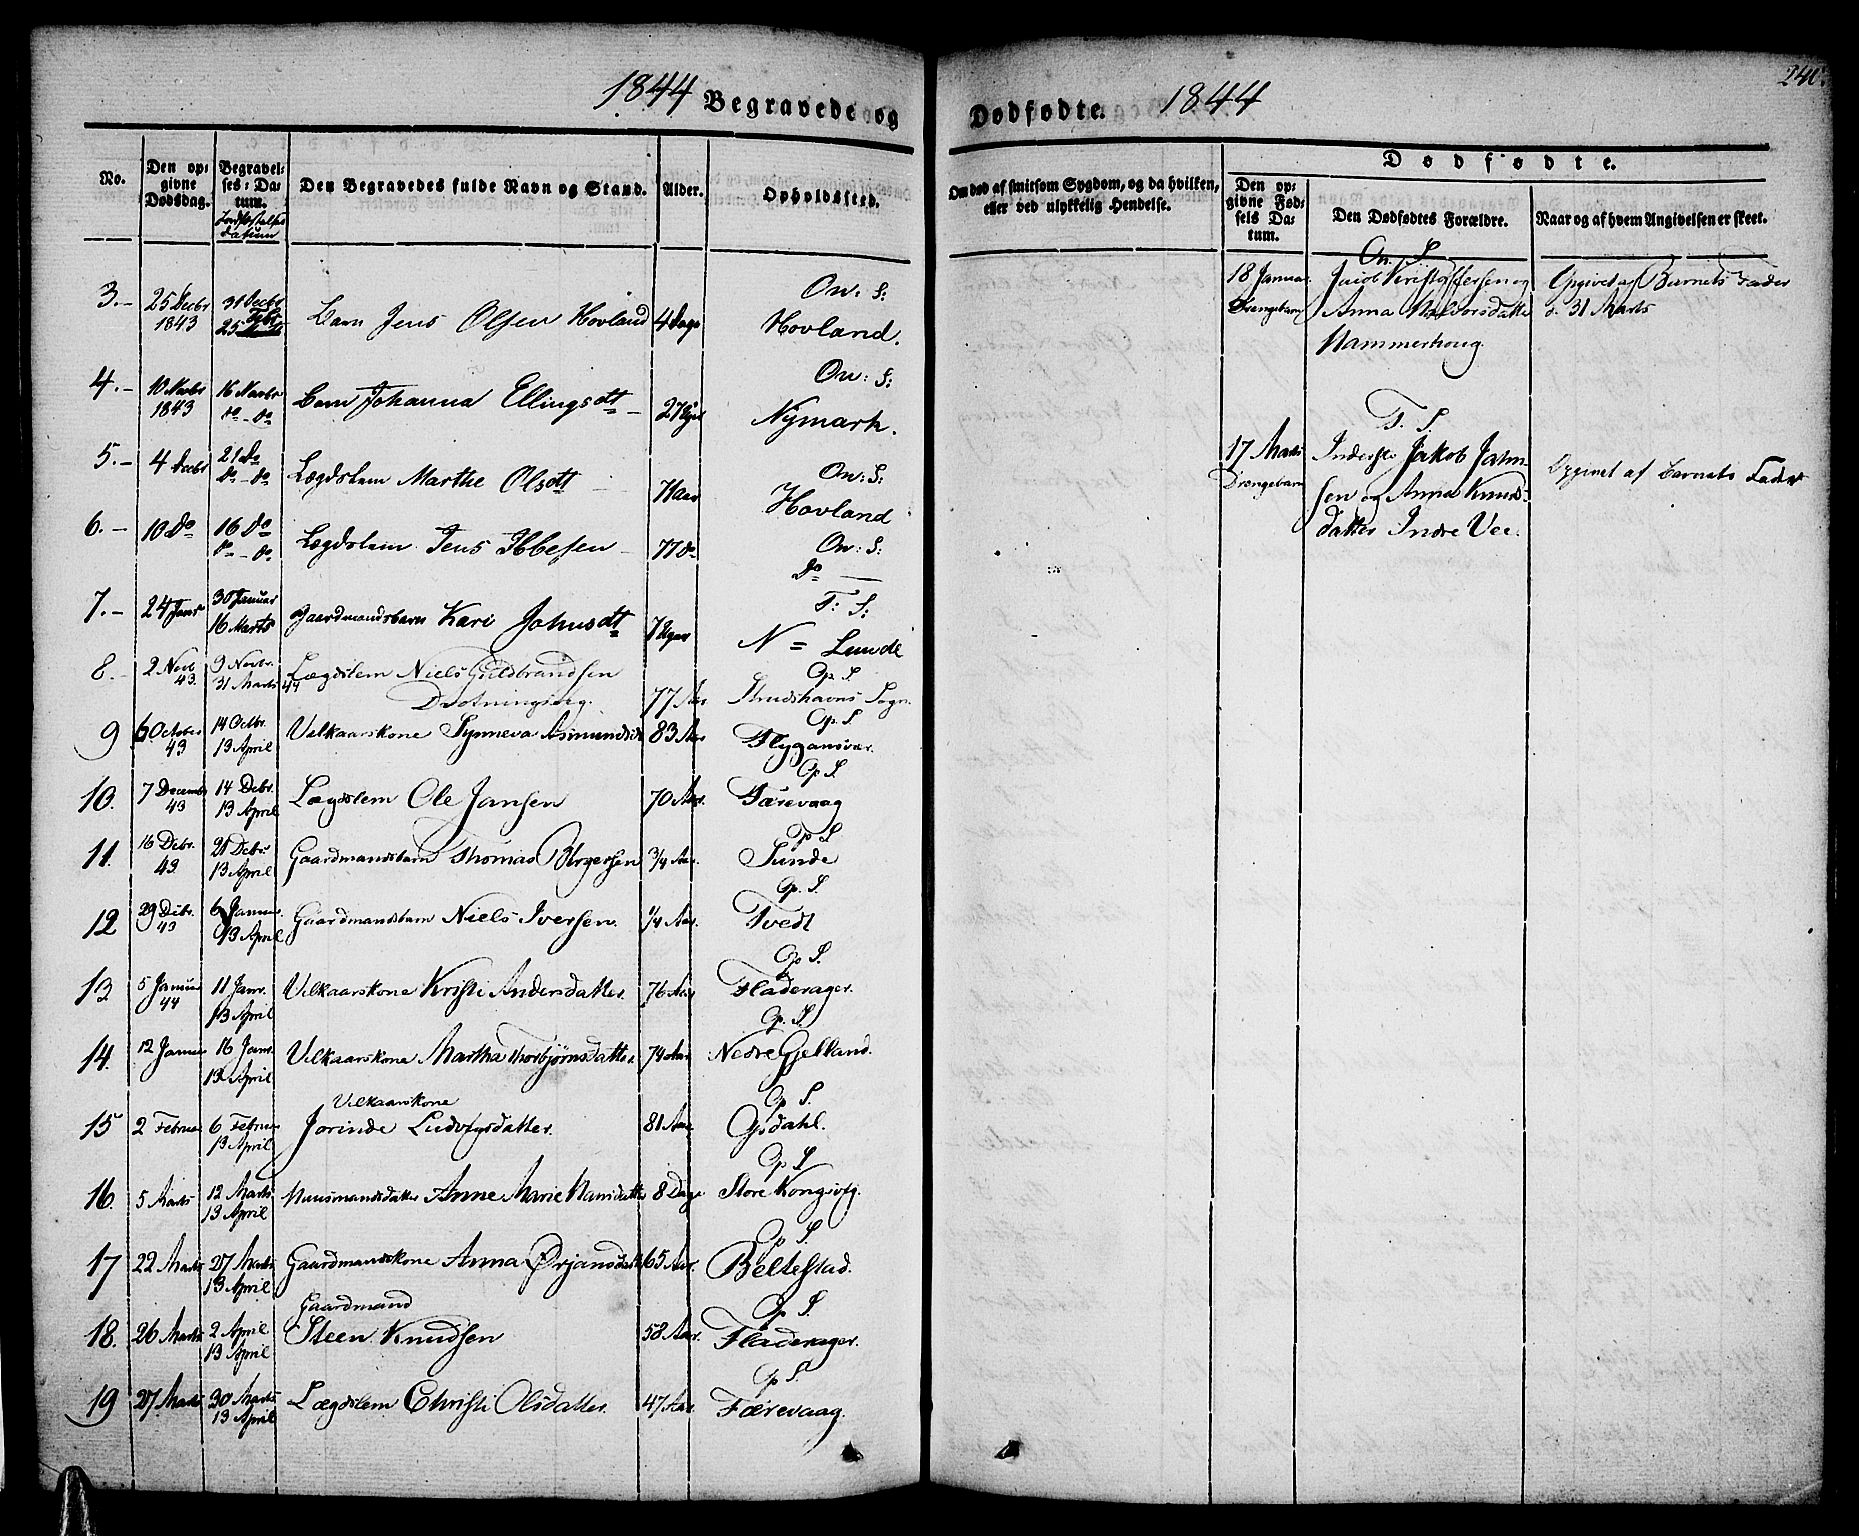 1844 Begravede og
Dødfødte. 1844
240.
No.
Den opgivne Dødsdag.
Begravelses-Datum.
Jordfæstelses datum
Den Begravedes fulde Navn og Stand.
Alder.
Opholdssted.
Om død af smitsom Sygdom, og da hvilken, eller ved ulykkelig Hendelse.
Dødfødte.
Den opgivne Fødsels Datum.
Den Dødfødtes Forældre.
Naar og af hvem Angivelsen er skeet.
3.- 25 Decbr 1843 31 Decbr 25 Febr Barn Jens Olsen Hovland 4 Dage On: S: Hovland.
4.- 10 Novbr 1843 16 Novbr do - do Barn Johanna Ellingsdtr 27 Uger On: S: Nymark.
5.- 4 Decbr 21 Do do - do Lægdslem Marthe Olsdtr 71 aar On: S: Hovland
6.- 10 Do 16 Do do - do Lægdslem Jens Ibbesen 77 do On: S: do
7.- 24 Janr 30 Januar 16 Marts Gaardmandsbarn Kari Johnsdtr 7 Uger T: S: N = Lunde
8.- 2 Novb 43 9 Novbr. 31 Marts 44 Lægdslem Niels Guldbrandsen Drotningsvig. 77 Aar Op. S. Strudshavns Sogn.
9 6 October 43 14 Octbr. 13 April Vilkaarskone Synneva Asmundsdt 83 Aar Op. S. Flygansvær.
10. 7 Decemb 43 14 Debr. 13 April Lægdslem Ole Jansen 70 Aar. Op S. Færevaag
11. 16 Debr. 43 21 Debr. 13 April Gaardmandsbarn Thomas Børgersen 3/4 Aar. Op S. Sunde
12 29 Debr. 43 6 Januar. 13 April Gaardmandsbarn Niels Iversen. 1/4 Aar. Op. S. Tvedt
13 5 Januar 44 11 Janr. 13 April Vilkaarskone Kristi Andersdatter. 76 Aar Op S. Fladerager.
14. 12 Januar 16 Janr. 13 April Vilkaarskone Martha Thorbjørnsdatter. 74 Aar Op. S. Nedre Gjelland.
15 2 Februar 6 Februar 13 April Vilkaarskone Jorinde Ludvigsdatter. 81 Aar Op S. Opdahl.
16. 5 Marts 12 Marts 13 April Huusmandsdatter Anne Marie Hansdatter 8 Dage Op S. Store Kongsvig.
17 22 Marts 27 Marts 13 April Gaardmandskone Anna Ørjansdatt 65 Aar. Op S. Beltestad.
18. 26 Marts 2 April 13 April Gaardmand Steen Knudsen 58 Aar. Op S. Fladerager.
19 27 Marts 30 Marts 13 April Lægdslem Christi Olsdatter. 47 Aar. Op S. Færevaag.
18 Januar Drengebarn On. S. Jacob Kristoffersen og Anna Halvorsdatter Hammerhoug. Opgivet af Barnets Fader d. 31 Marts
17 Marts Drengebarn T. S. Inderste Jakob Jahnsen og Anna Knudsdatter Indre Vee. Opgivet af Barnets Fader